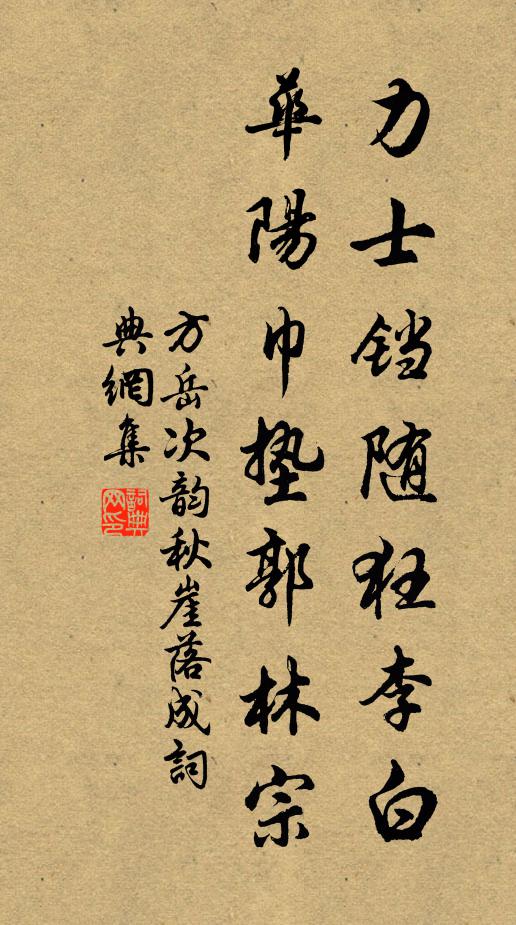 力士铛随狂李白
華陽巾墊郭林宗
方岳次韵秋崖落成詞
典網集
詞典网印